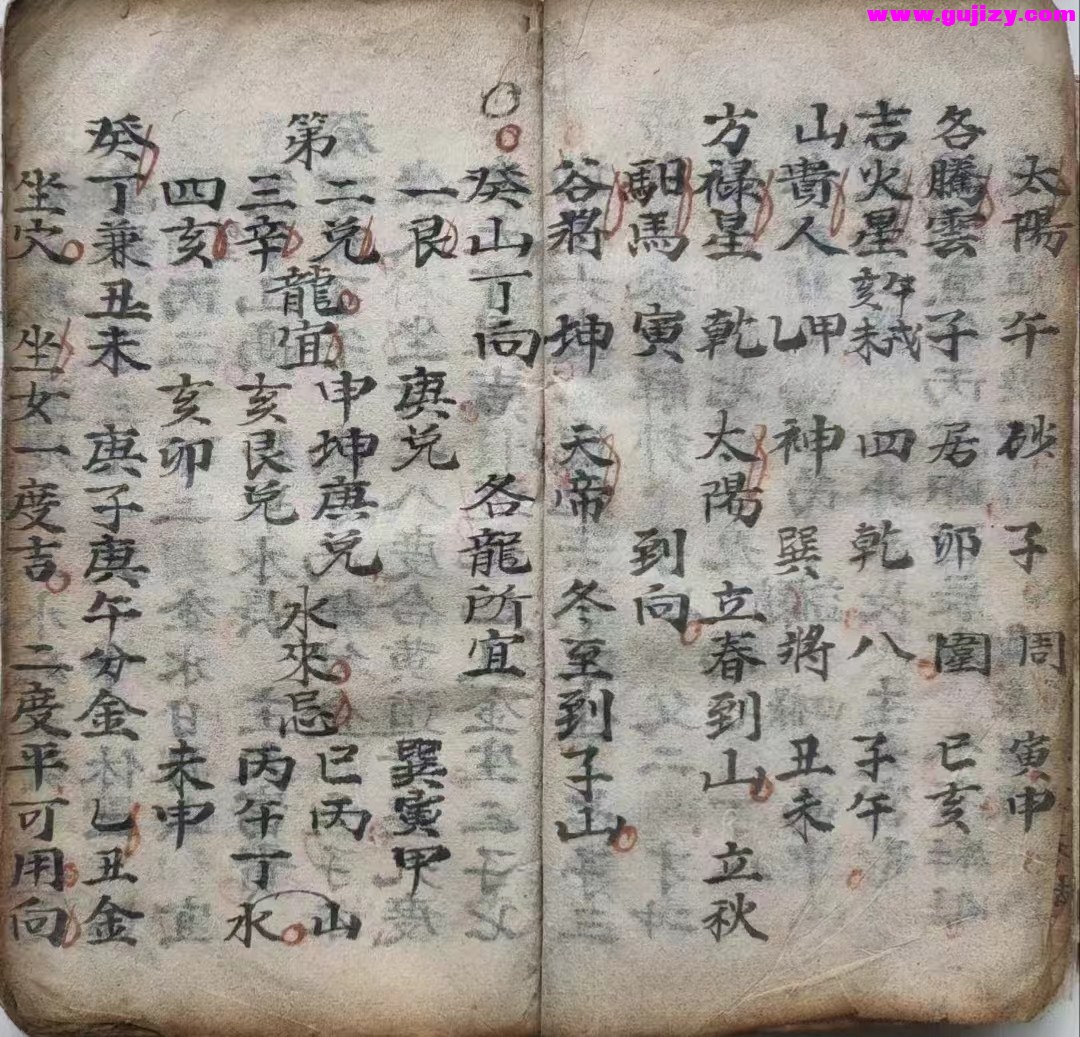 www.gujizy.com
太陽 午 砂 子 周 寅申
各騰雲 子 居 卯 圍 巳亥
吉火星 午戌亥未 四 乾 八 子午
山貴人 甲乙 神 巽 將 丑未
方禄星 乾 太陽 立春到山 立秋
馹馬 寅 到向
谷將 坤 天帝 冬至到子山
癸山丁向 各龍所宜
一艮 庚兌 巽寅甲
第二兌 龍宜 申坤庚兌 水來忌 巳丙 山
三辛 亥艮兌 丙午丁水
四亥 亥卯 未申
癸丁兼丑未 庚子庚午分金 乙丑金
坐穴 坐女一度吉 二度平可用向